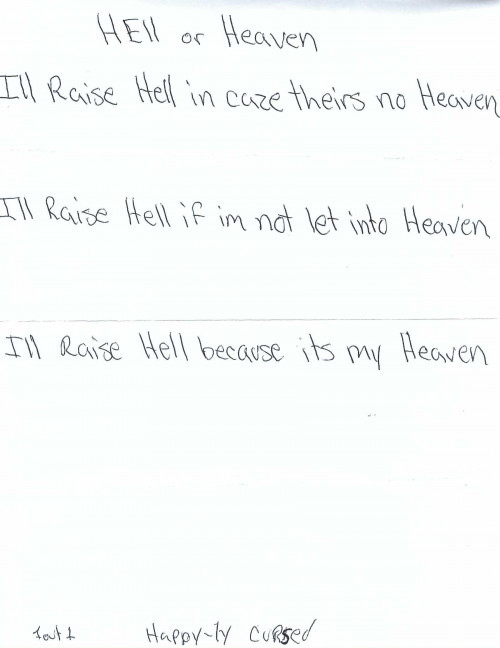 HEll or Heaven
I'll Raise Hell in caze theirs no Heaven
I'll Raise Hell if im not let into Heaven
I'll Raise Hell because its my Heaven
1 out 1 Happy-ly cursed